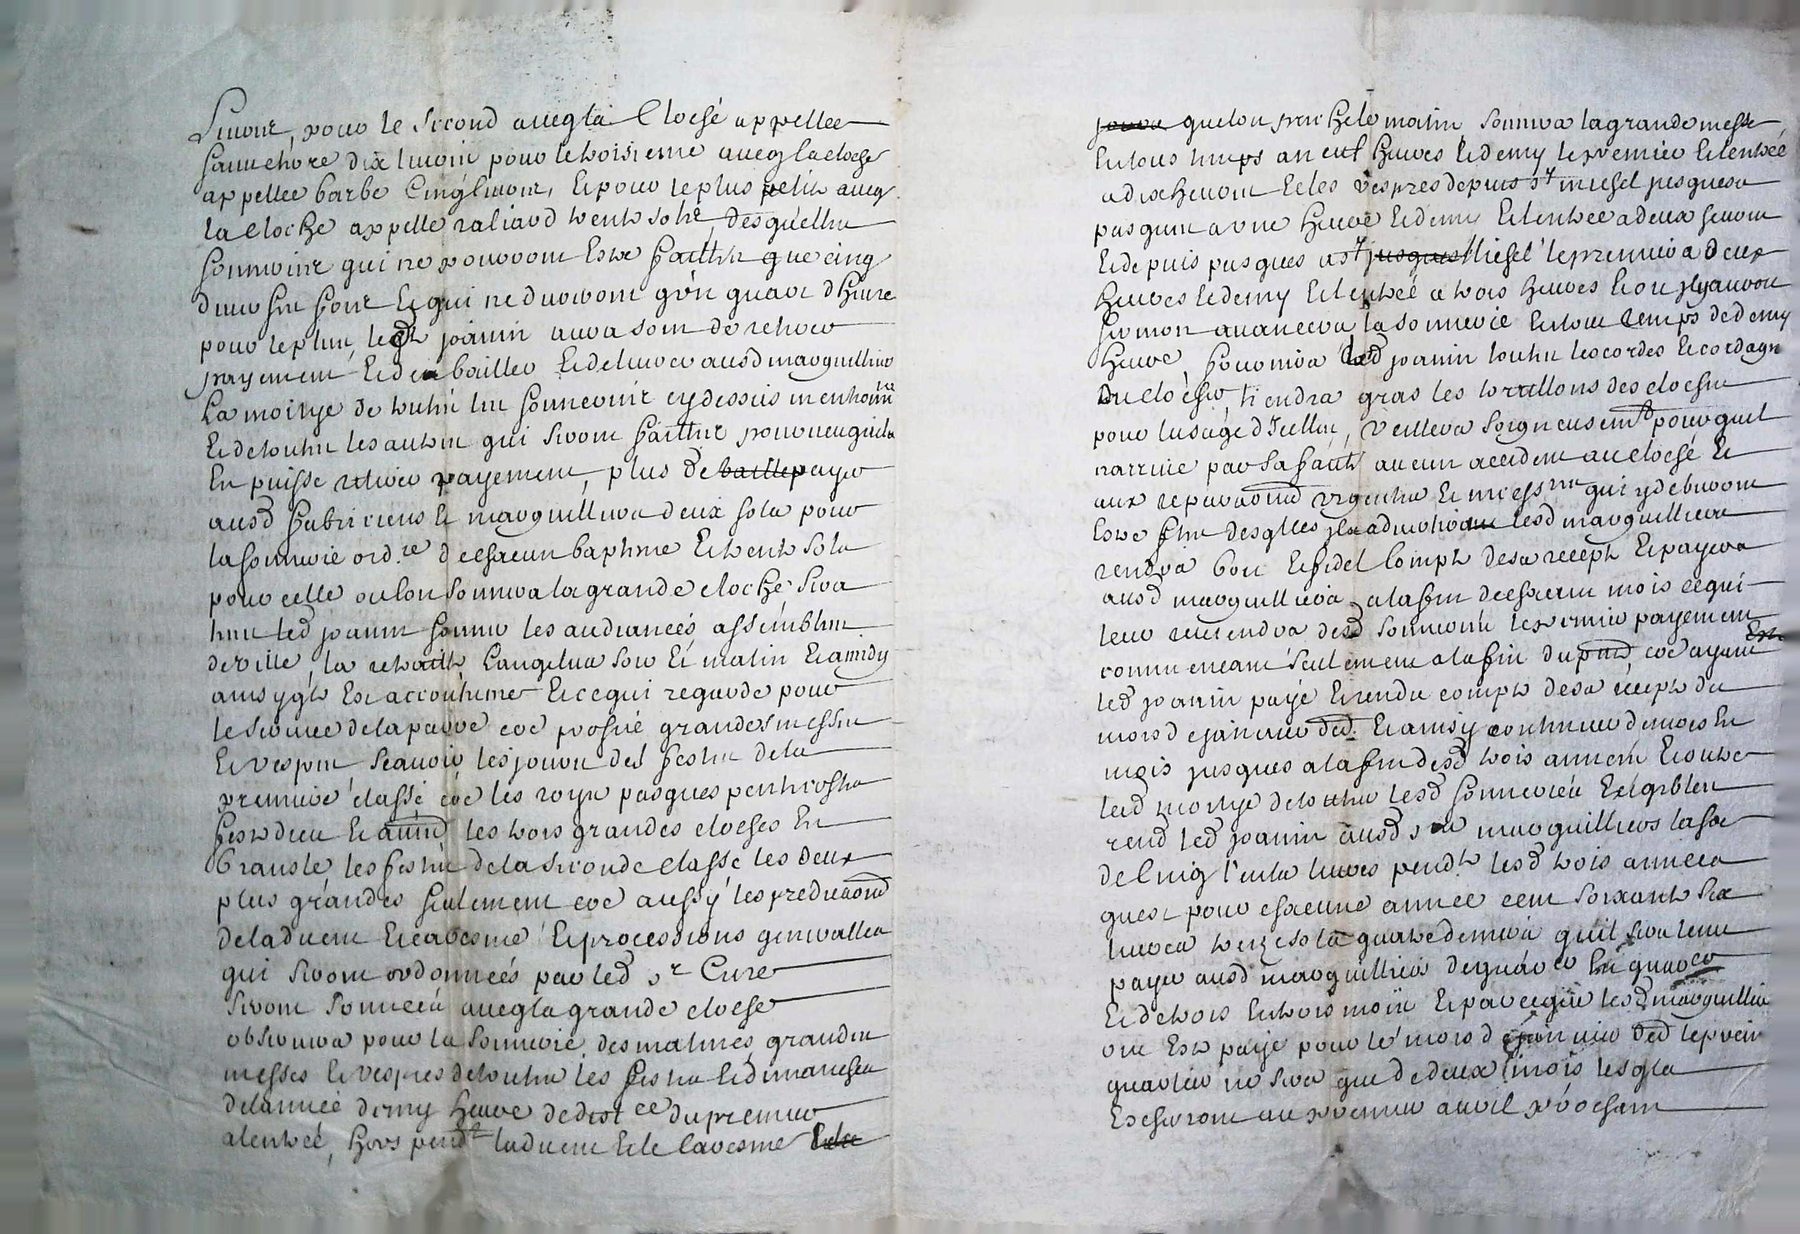 Livres, pour le second avecq la Cloche appellee
Sauvehore dix livres pour le troisieme avecq la cloche
appellee barbe Cinq livres, Et pour le plus petit avecq
la cloche appelle raliard trente solz, desquelles
sonneries qui ne pourront Estre faittes que cinq
durant son jour Et qui ne dureront q'un quart d'heure
pour le plus, led joanin aura soin de retirer
payement Et den bailler Et delivrer ausd marguilliers
La moitye de touttes les sonneries cy dessus mentionn
Et de touttes les autres qui seront faittes pourveu quil
En puisse retirer payement, plus de payer
ausd fabriciens Et marguilliers deux solz pour
la sonnerie ord.re de chacun baptesme Et trente solz
pour celle ou lon sonnera la grande cloche sera
tenu led joanin sonner les audiances assemblees
de ville, la retraitte Langelus soir Et matin Et a midy
ainsy q'il Est accoutume Et ce qui regarde pour
le service de la parre coe prosne grandes messes
Et vespres scavoir les jours des festes de la
premiere classe coe les roys pasques penthecoste
feste dieu Et autres les trois grandes cloches En
bransle les festes de la seconde classe les deux
plus grandes seulement coe aussy les predications
de ladvent Et caresme Et processions generalles
qui seront ordonnées par led sr Cure
seront sonnees avecq la grande cloche
observera pour la sonnerie des matines, grandes
messes Et vespres de touttes les festes Et dimanches
de lannée demy heure de distce du premier
a lentrée, hors pendt ladvent Et le caresme
que lon preche le matin sonnera la grande messe
En tous temps a neuf heures Et demy le premier Et lentrée
a dix heures Et les vespres depuis st michel jusques a
pasques a une heure Et demy Et lentree a deux heures
Et depuis pasques a st Michel le premier a deux
heures Et demy Et lentrée a trois heures Et ou il y auroit
sermon avancera la sonnerie En tout temps de demy
heure, fournira led joanin touttes les cordes Et cordages
du clocher tiendra gras les tourillons des cloches
pour lusage d'Icelles, veillera soigneusemt pour quil
narrive par sa faute aucun accident au cloché Et
aux reparaons urgentes Et necessres qui y debvront
Estre faites desqlles il advertira lesd marguilliers
rendra bon Et fidel compte de sa recepte Et payera
ausd marguilliers a la fin de chacun mois ce qui
leur reviendra desd sonneries le premier payement
commenceant seulement a la fin du pnt, coe ayant
led joanin payé Et rendu compte de sa recepte du
mois de janvier der Et ainsy continuer de mois En
mois jusques a la fin desd trois années Et outre
lad moitye de touttes lesd sonneries Exigibles
rend led joanin ausd srs marguilliers la some
de Cinq Cents livres pendt lesd trois annees
quest pour chacune annee cent soixante six
livres treize solz quatre deniers quil sera tenu
payer ausd marguilliers de quartier En quartier
Et de trois En trois mois Et parce que lesd marguilliers
ont Este payé pour le mois de janvier der le premier
quartier ne sera que de deux mois lesqls
Escherront au premier avril prochain